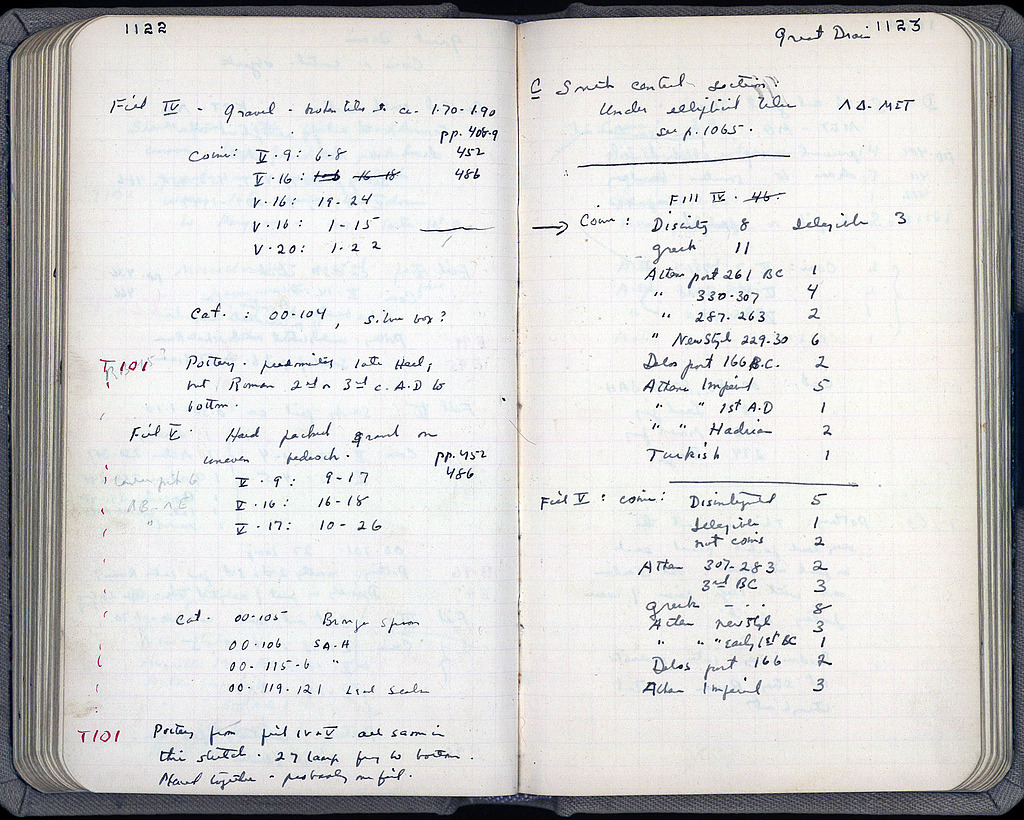 1122
Fill IV - gravel - broken tiles & ca. 1.70-1.90
pp. 408-9
Coins: V·9: 6-8 452
V·16: 16-18 486
V·16: 19-24
V·16: 1-15
V·20: 1-22
Cat. : 00-104, silver box?
T101 Pottery - predominantly late Hell;
but Roman 2nd or 3rd c. A.D to
bottom.
Fill V. Hard packed gravel on
uneven bedrock. pp. 452
V·9: 9-17 486
V·16: 16-18
V·17: 10-26
Cat. 00-105 Bronze spoon
00-106 SA-H
00-115-6 "
00-119-121 Lead sealer
T101 Pottery from fill IV & V all same in
this sketch. 27 lamp frg to bottom.
Placed together - probably one fill.
Great Drain 1123
C South central section
Under elliptical tiles ΛΔ-ΜΣΤ
see p. 1065.
Fill IV. 46.
→ Coins: Disinteg 8 Illegible 3
Greek 11
Athen post 261 BC 1
" 330-307 4
" 287-263 2
" New Style 229-30 6
Delos post 166 B.C. 2
Athens Imperial 5
" " 1st A.D 1
" " Hadrian 2
Turkish 1
Fill V: coins: Disintegrated 5
Illegible 1
not coins 2
Athen 307-283 2
3rd BC 3
Greek - ... 8
Athen New Style 3
" " " early 1st BC 1
Delos post 166 2
Athen Imperial 3